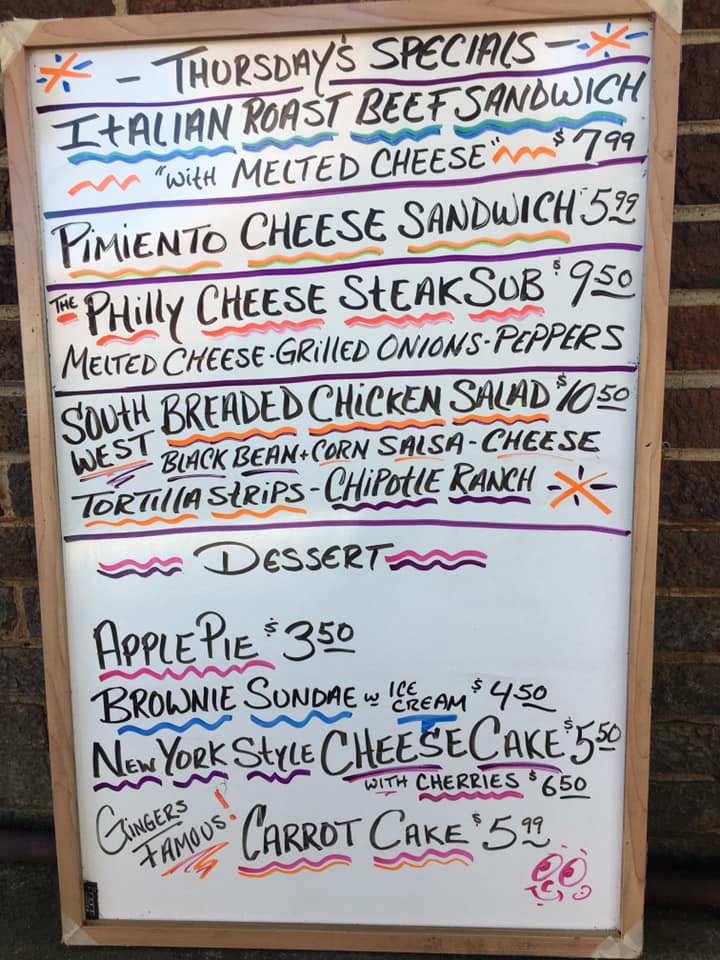 - THURSDAY'S SPECIALS -
ITALIAN ROAST BEEF SANDWICH
"WITH MELTED CHEESE" $7.99
PIMIENTO CHEESE SANDWICH $5.99
THE PHILLY CHEESE STEAK SUB $9.50
MELTED CHEESE · GRILLED ONIONS - PEPPERS
SOUTH WEST BREADED CHICKEN SALAD $10.50
BLACK BEAN + CORN SALSA - CHEESE
TORTILLA STRIPS - CHIPOTLE RANCH
DESSERT
APPLE PIE $3.50
BROWNIE SUNDAE w ICE CREAM $4.50
NEW YORK STYLE CHEESE CAKE $5.50
WITH CHERRIES $6.50
GINGERS FAMOUS! CARROT CAKE $5.99